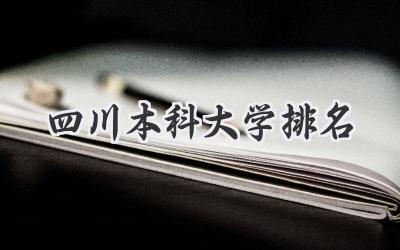 四川本科大学排名